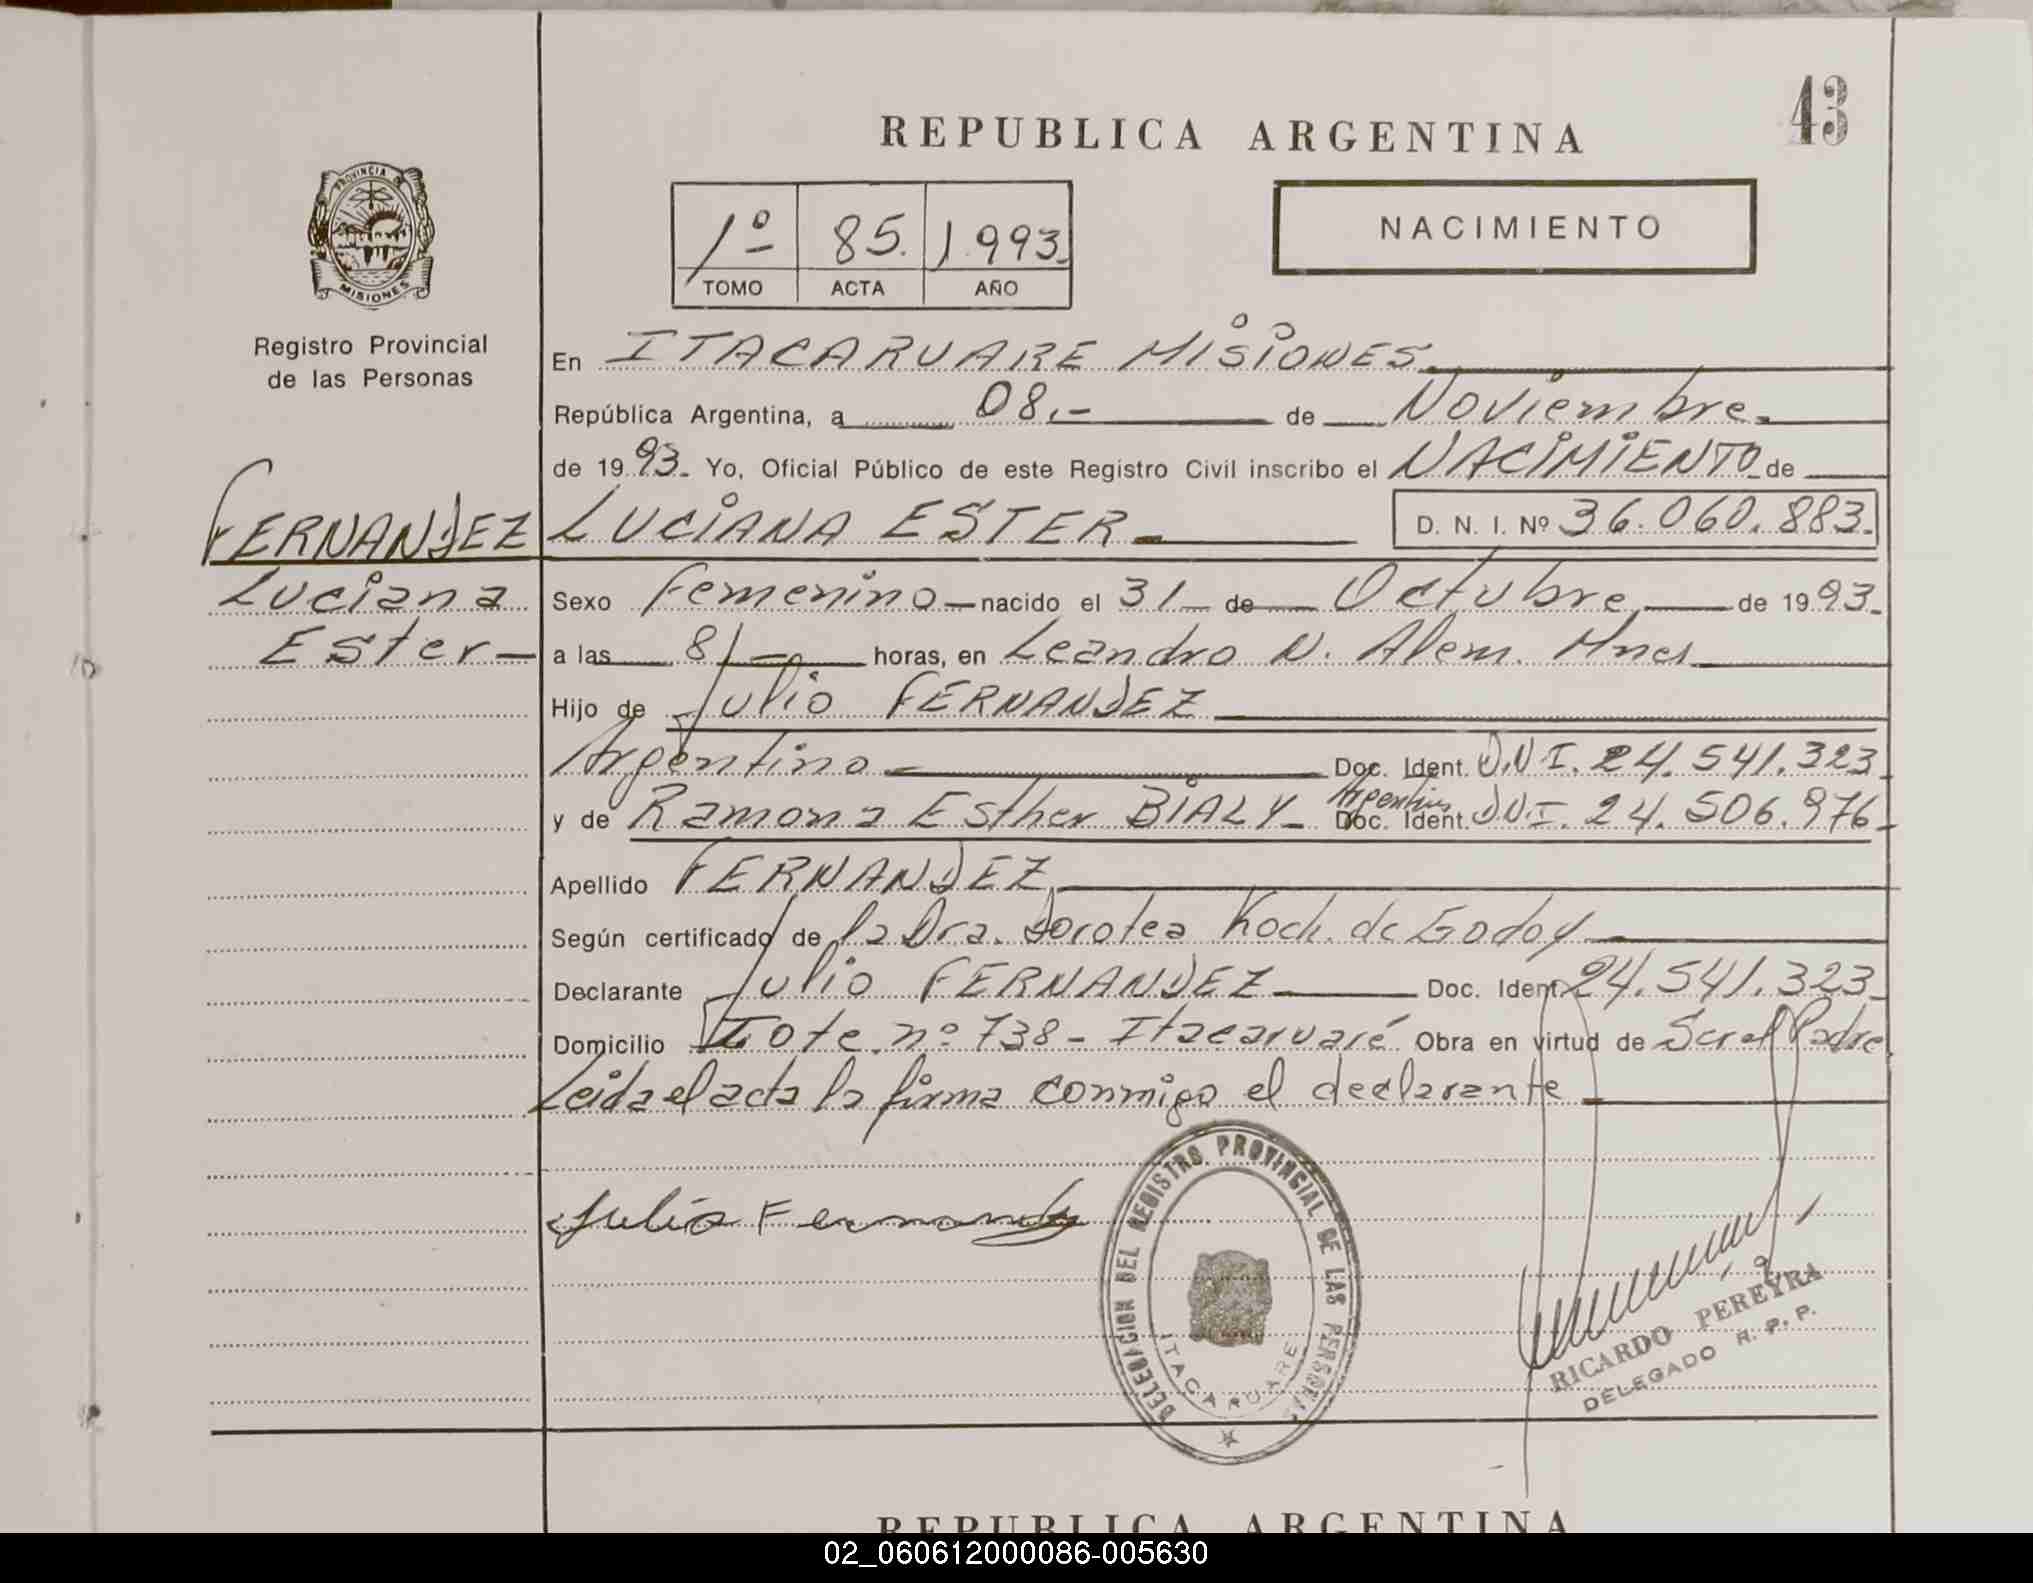 43
REPUBLICA ARGENTINA
PROVINCIA DE
MISIONES
1º 85. 1.993.
TOMO ACTA AÑO
NACIMIENTO
Registro Provincial
de las Personas
En ITACARUARE MISIONES
República Argentina, a 08.- de Noviembre.
de 1993. Yo, Oficial Público de este Registro Civil inscribo el NACIMIENTO de
FERNANDEZ LUCIANA ESTER D. N. I. Nº 36.060.883.
Luciana
Ester
Sexo Femenino nacido el 31 de Octubre de 1993.
a las 8/ horas, en Leandro N. Alem. Mnes
Hijo de Julio FERNANDEZ
Argentino Doc. Ident. D.N.I. 24.541.323
y de Ramona Esther BIALY Argentina Doc. Ident. D.N.I. 24.506.976
Apellido FERNANDEZ
Según certificado de la Dra. Dorotea Koch. de Godoy
Declarante Julio FERNANDEZ Doc. Ident. 24.541.323
Domicilio Lote nº 738 - Itacaruaré Obra en virtud de Ser el Padre
Leida el acta la firma conmigo el declarante
Julio Fernandez
DELEGACION DEL REGISTRO PROVINCIAL DE LAS PERSONAS
ITACARUARE
RICARDO PEREYRA
DELEGADO R. P. P.
REPUBLICA ARGENTINA
02_060612000086-005630